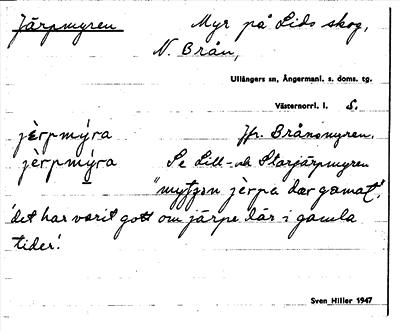 Järpmyren Myr på Lids skog,
N. Brån,
Ullångers sn, Ångermanl. s. doms. tg.
Västernorrl. l. S.
jèrpmýra Jfr. Brånsmyren.
jèrpmýra Se Lill- och Storjärpmyren
"mytjɘn jèrpa dær gamat".
'det har varit gott om järpe där i gamla
tider'.
Sven Hiller 1947